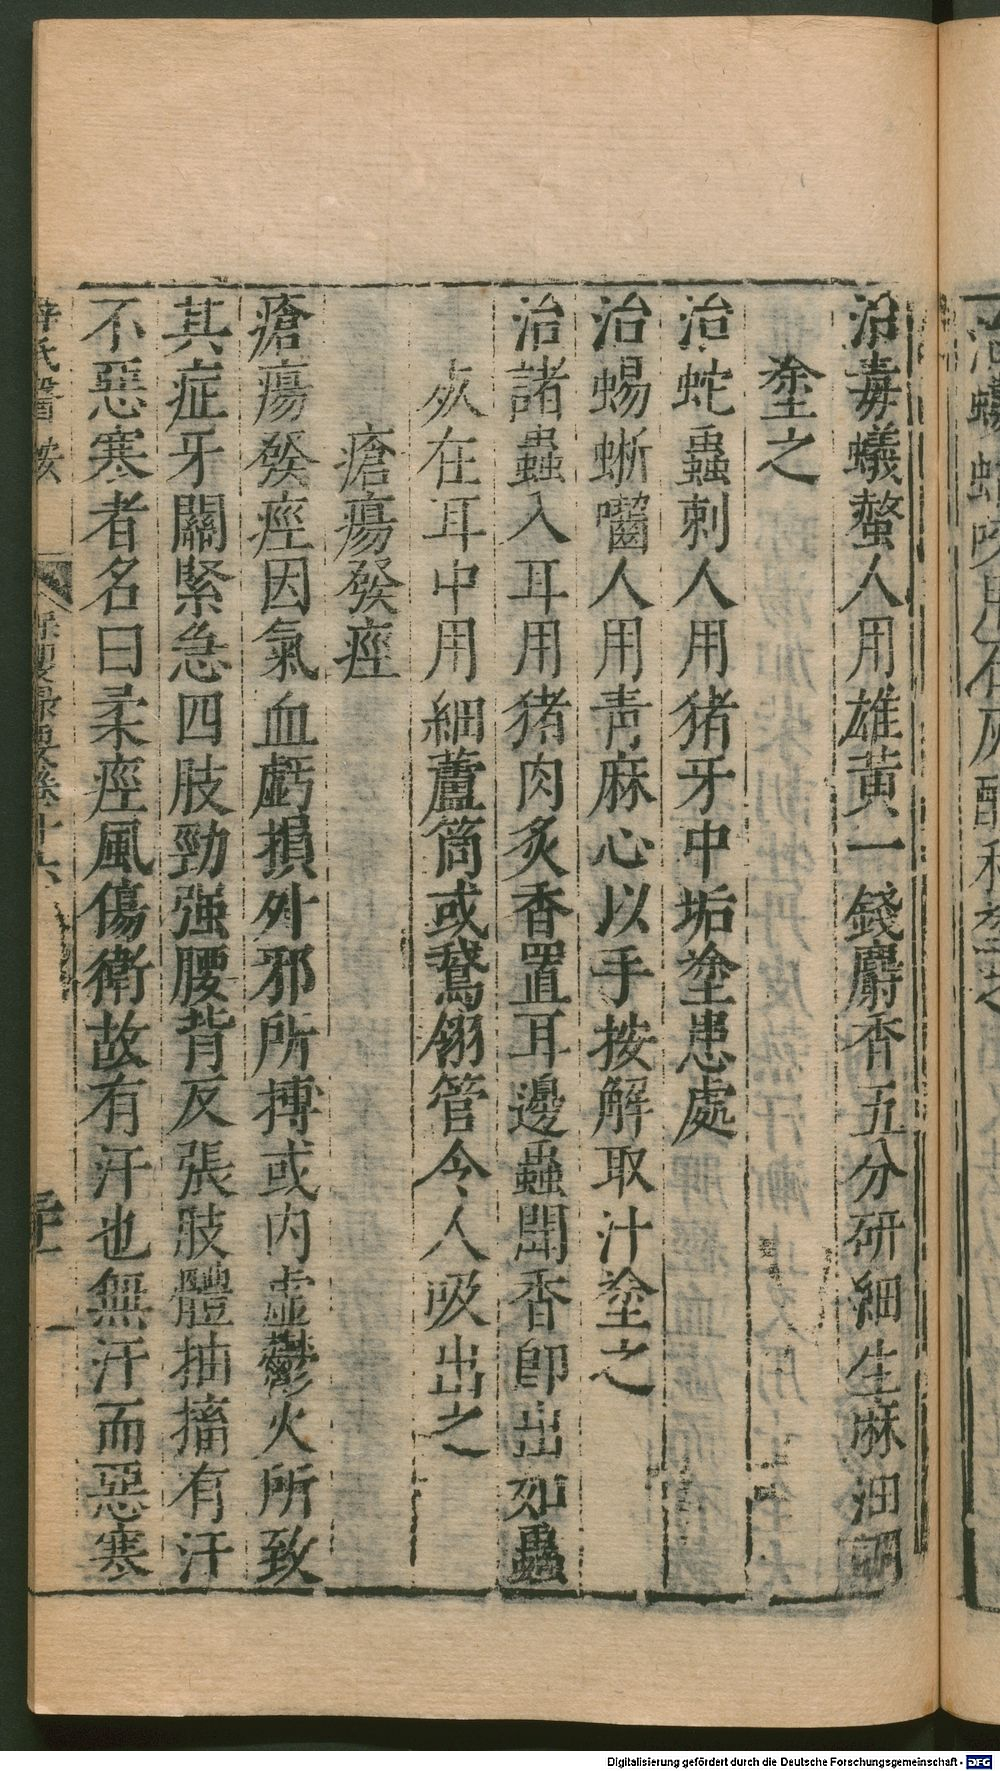 治毒蟻螫人用雄黃一錢麝香五分研細生麻油調
塗之
治蛇蟲刺人用猪牙中垢塗患處
治蜴蜥嚙人用靑麻心以手按解取汁塗之
治諸蟲入耳用猪肉炙香置耳邊蟲聞香卽出如蟲
夾在耳中用細蘆筒或鵞翎管令人吸出之
瘡瘍發痙
瘡瘍發痙因氣血虧損外邪所搏或内虛鬱火所致
其症牙關緊急四肢勁强腰背反張肢體抽搐有汗
不惡寒者名曰柔痙風傷衛故有汗也無汗而惡寒
薛氏醫按
保嬰撮要卷十六
Digitalisierung gefördert durch die Deutsche Forschungsgemeinschaft - DFG